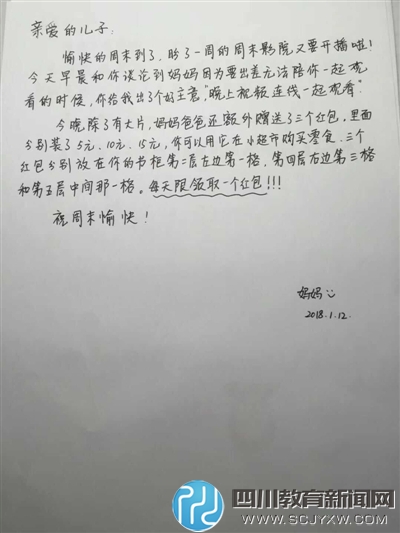 亲爱的儿子:
愉快的周末到了,盼了一周的周末影院又要开播啦!
今天早晨和你谈论到妈妈因为要出差无法陪你一起观
看的时候,你给我出了个好主意,"晚上视频连线一起观看"
今晚除了有大片,妈妈爸爸还额外赠送了三个红包,里面
分别装了5元、10元、15元,你可以用它在小超市购买零食.三个
红包分别放在你的书柜第二层左边第一格,第四层右边第三格
和第五层中间那一格。每天限领取一个红包!!!
祝周末愉快!
妈妈
2018.1.12.
四川教育新闻网
WWW.SCJYXW.COM